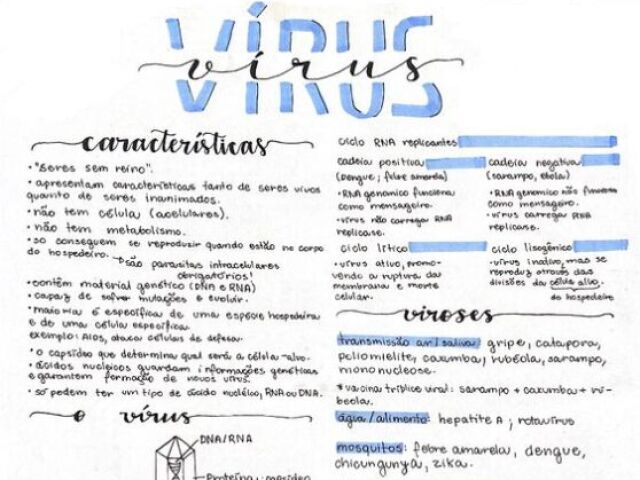 VÍRUS
vírus
características
• "Seres sem reino".
• apresentam características tanto de seres vivos
quanto de seres inanimados.
• não tem célula (acelulares).
• não tem metabolismo.
• só conseguem se reproduzir quando estão no corpo
do hospedeiro.
são parasitas intracelulares
obrigatórios!
• contêm material genético (DNA e RNA)
• capaz de sofrer mutações e evoluir.
• maioria é específica de uma espécie hospedeira
e de uma célula específica.
exemplo: Aids, ataca células de defesa.
• o capsídeo que determina qual será a célula-alvo.
• ácidos nucleicos guardam informações genéticas
e garantem formação de novos vírus.
• só podem ter um tipo de ácido nucléico, RNA ou DNA.
o vírus
DNA/RNA
Proteína: capsídeo
ciclo RNA replicantes
cadeia positiva
(dengue, febre amarela)
• RNA genomico funciona
como mensageiro.
• vírus não carregar RNA
replicase.
cadeia negativa
(sarampo, ebola)
• RNA genomico não funciona
como mensageiro.
• vírus carregar RNA
replicase.
ciclo lítico
• vírus ativo, promo-
vendo a ruptura da
membrana e morte
celular.
ciclo lisogênico
• vírus inativo, mas se
reproduz através das
divisões da célula alvo.
do hospedeiro
viroses
transmissão ar/saliva: gripe, catapora,
poliomielite, caxumba, rubéola, sarampo,
mononucleose.
*vacina tríplice viral: sarampo + caxumba + ru-
beola.
água/alimento: hepatite A; rotavírus
mosquitos: febre amarela, dengue,
chicungunya, zika.